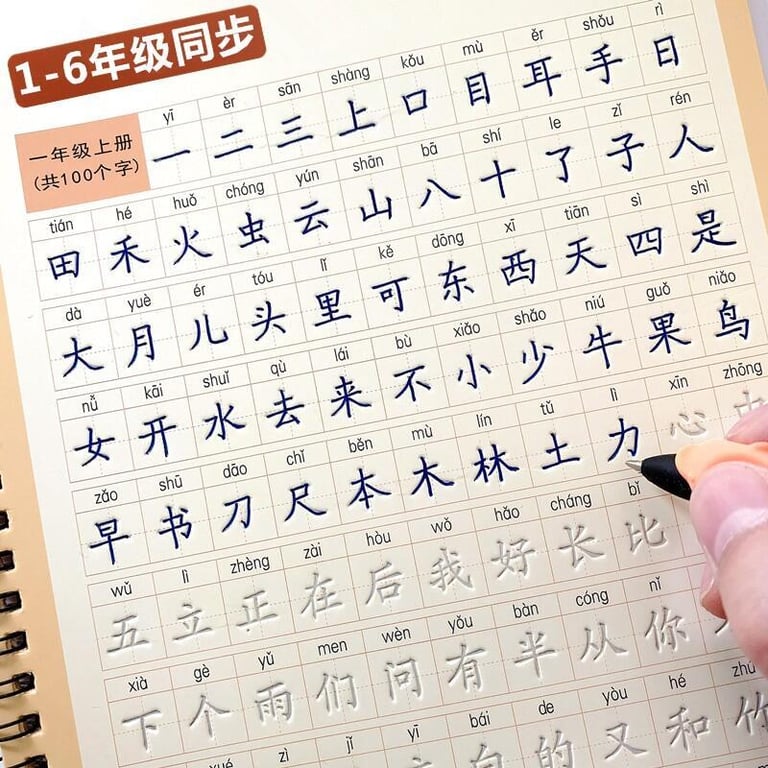 1-6年级同步
yī èr sān shàng kǒu mù ěr shǒu rì
一年级上册
(共100个字)
一 二 三 上 口 目 耳 手 日
tián hé huǒ chóng yún shān bā shí le zǐ rén
田 禾 火 虫 云 山 八 十 了 子 人
dà yuè ér tóu lǐ kě dōng xī tiān sì shì
大 月 儿 头 里 可 东 西 天 四 是
nǚ kāi shuǐ qù lái bù xiǎo shǎo niú guǒ niǎo
女 开 水 去 来 不 小 少 牛 果 鸟
zǎo shū dāo chǐ běn mù lín tǔ lì xīn zhōng
早 书 刀 尺 本 木 林 土 力 心
wǔ lì zhèng zài hòu wǒ hǎo cháng bǐ
五 立 正 在 后 我 好 长 比
xià gè yǔ men wèn yǒu bàn cóng nǐ
下 个 雨 们 问 有 半 从 你
zì jǐ yī bái de yòu hé zhú
白 的 又 和 竹